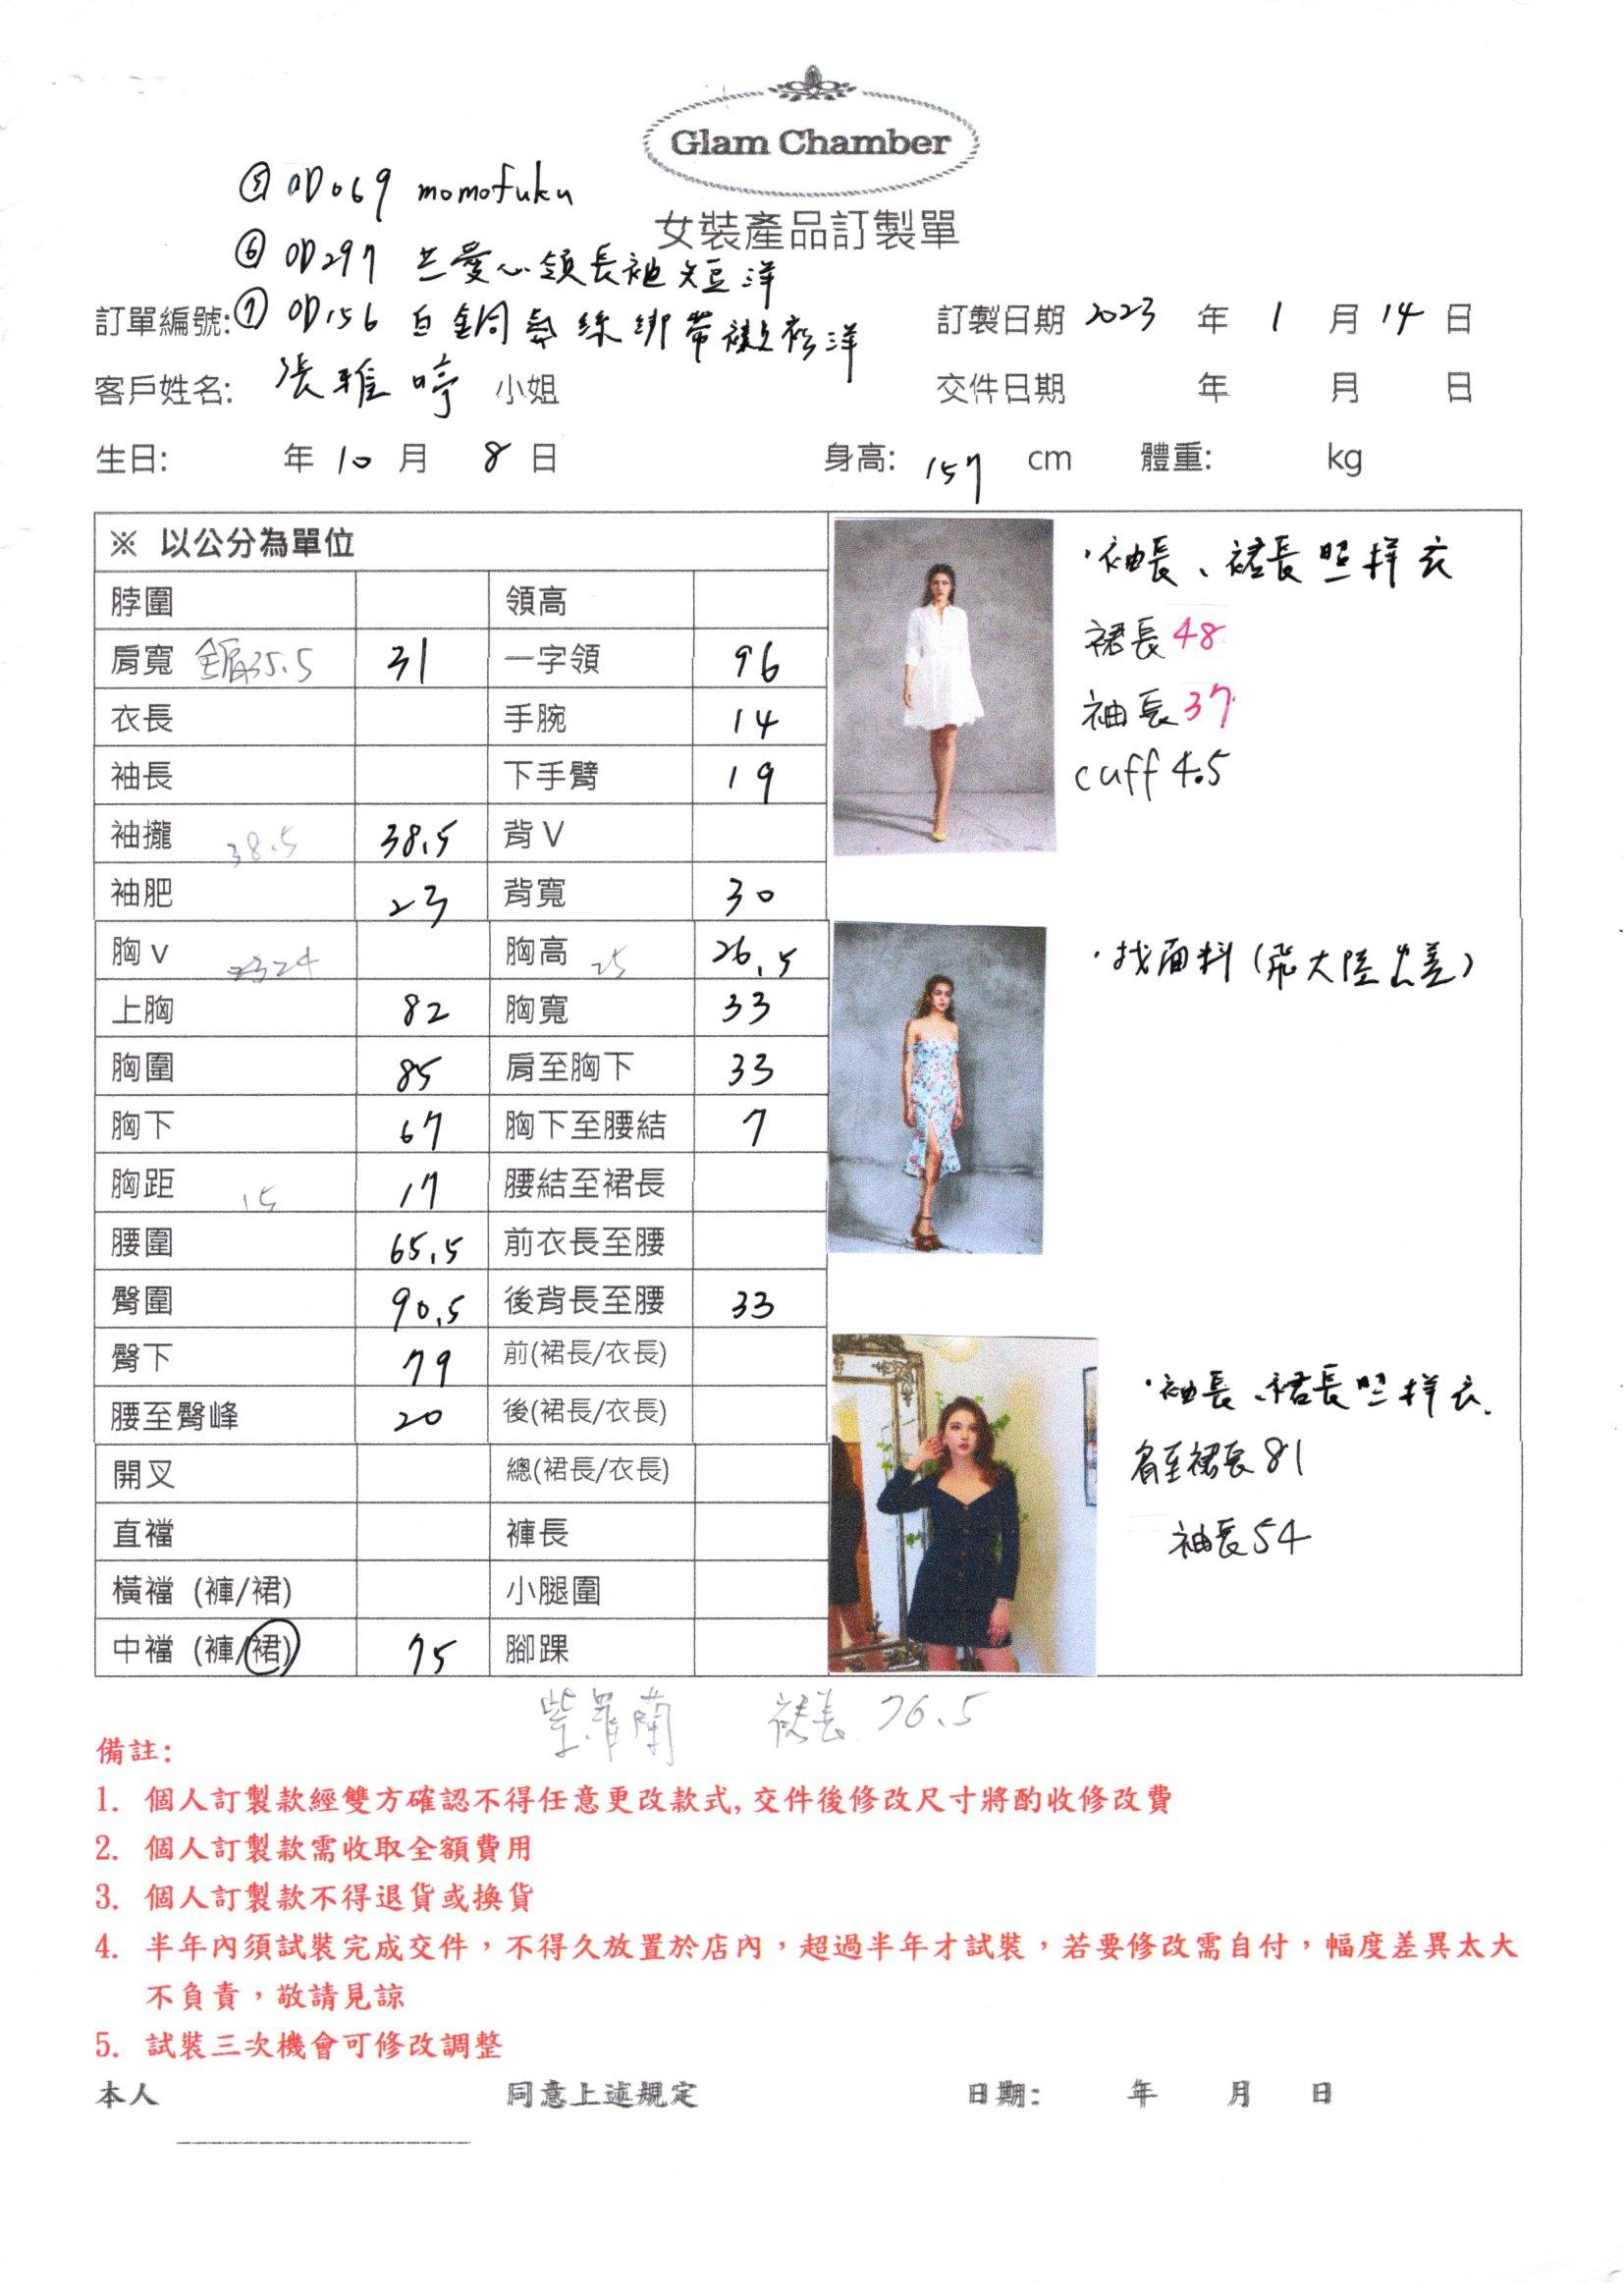 Glam Chamber
女裝產品訂製單
⑤ OD069 momofuku
⑥ OD297 愛心領長袖短洋
訂單編號: ⑦ OD156 白銅氨絲綁帶襯衫洋
訂製日期 2023 年 1 月 14 日
客戶姓名: 張雅婷 小姐
交件日期 年 月 日
生日: 年 10 月 8 日 身高: 157 cm 體重: kg
※ 以公分為單位
脖圍 領高
肩寬 全肩35.5 31 一字領 96
衣長 手腕 14
袖長 下手臂 19
袖攏 38.5 38.5 背V
袖肥 23 背寬 30
胸v 24 胸高 25 26.5
上胸 82 胸寬 33
胸圍 85 肩至胸下 33
胸下 67 胸下至腰結 7
胸距 15 17 腰結至裙長
腰圍 65.5 前衣長至腰
臀圍 90.5 後背長至腰 33
臀下 79 前(裙長/衣長)
腰至臀峰 20 後(裙長/衣長)
開叉 總(裙長/衣長)
直襠 褲長
橫襠 (褲/裙) 小腿圍
中襠 (褲/裙) 75 腳踝
·袖長、裙長照样衣
裙長48
袖長37
cuff 4.5
·找面料(飛大陸出差)
·袖長、裙長照样衣.
肩至裙長81
袖長54
紫羅蘭 裙長 76.5
備註:
1. 個人訂製款經雙方確認不得任意更改款式,交件後修改尺寸將酌收修改費
2. 個人訂製款需收取全額費用
3. 個人訂製款不得退貨或換貨
4. 半年內須試裝完成交件，不得久放置於店內，超過半年才試裝，若要修改需自付，幅度差異太大
不負責，敬請見諒
5. 試裝三次機會可修改調整
本人 同意上述規定 日期: 年 月 日